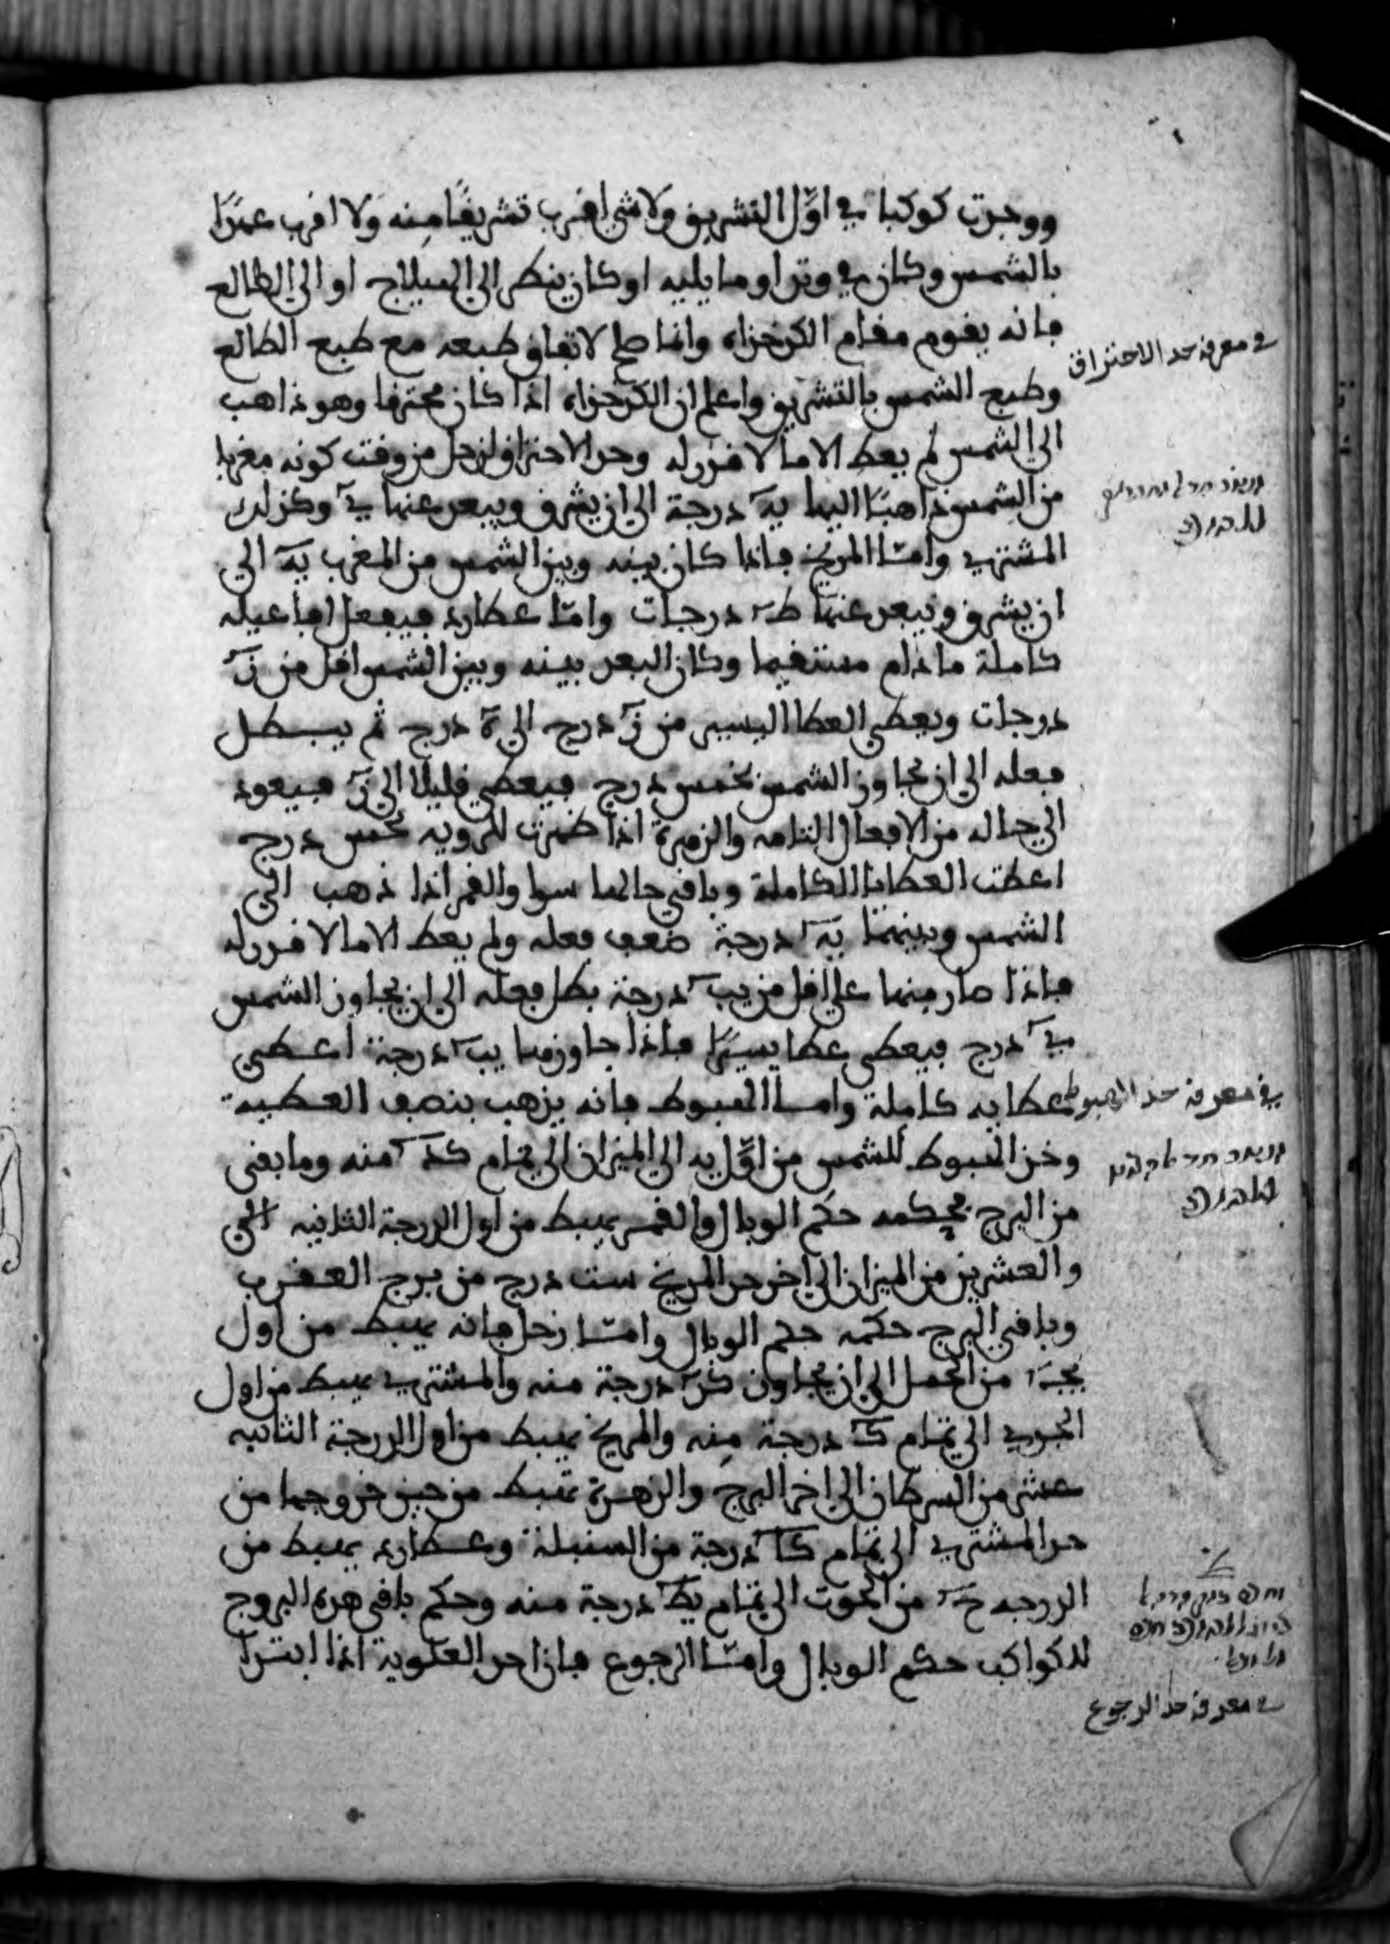 ووجدت كوكبا في اوّل التشريق ولا شي اقرب تشريقًا منه ولا اقرب عهدًا
بالشمس وكان في وتد او ما يليه او كان ينظر الى الهيلاج او الى الطالع
فانه يقوم مقام الكدخداه وانما صلح لاتفاق طبعه مع طبع الطالع
وطبع الشمس بالتشريق واعلم ان الكدخداه اذا كان محترقا وهو ذاهب
الى الشمس لم يعط الا ما لا قدر له وحد الاحتراق لزحل من وقت كونه مغربا
من الشمس ذاهبًا اليها يه درجة الى ان يشرق ويبعد عنها ي وكذلك
المشتري وامّا المريخ فاذا كان بينه وبين الشمس من المغرب يه الى
ان يشرق ويبعد عنها ط درجات وامّا عطارد فيفعل افاعيله
كاملة ما دام مستقيما وكان البعد بينه وبين الشمس اقل من ز
درجات ويعطى العطا اليسير من ز درج الى ه درج ثم يبطل
فعله الى ان يجاوز الشمس بخمس درج فيعطي قليلا الى ز فيعود
الى حاله من الافعال التامه والزهرة اذا ظهرت للرويه بخمس درج
اعطت العطايا الكاملة وباقي حالها سوا والقمر اذا ذهب الى
الشمس وبينهما يه درجة ضعف فعله ولم يعط الا ما لا قدر له
فاذا صار منها على اقل من يب درجة بطل فعله الى ان يجاوز الشمس
ي درج فيعطى عطا يسيرًا فاذا جاوزها يب درجة اعطى
عطايه كاملة وامّا الهبوط فانه يذهب بنصف العطية
وحد الهبوط للشمس من اوّل يه الى الميزان الى تمام كد منه وما بقى
من البرج فحكمه حكم الوبال والقمر يهبط من اول الدرجة الثانيه
والعشرين من الميزان الى اخر حد المريخ ست درج من برج العقرب
وباقي البرج حكمه حكم الوبال وامّا زحل فانه يهبط من اول
من الحمل الى ان يجاوز درجة منه والمشتري يهبط من اول
الجدي الى تمام درجة منه والمريخ يهبط من اول الدرجة الثانيه
عشر من السرطان الى اخر البرج والزهرة تهبط من حين خروجها من
حد المشتري الى تمام كا درجة من السنبلة وعطارد يهبط من
الدرجه من الحوت الى تمام يط درجة منه وحكم باقي هذه البروج
للكواكب حكم الوبال وامّا الرجوع فاذا احد العلوية اذا ابتدا
في معرفة حد الاحتراق
في معرفة حد الهبوط
في معرفة حد الرجوع